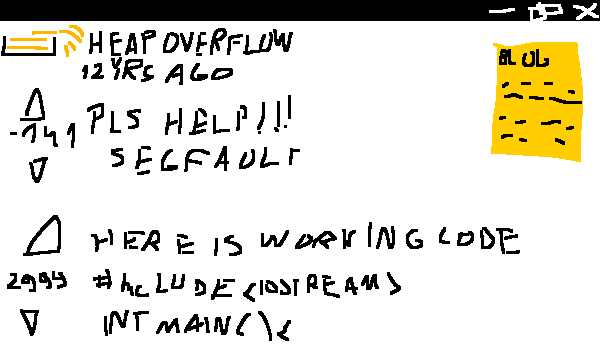 HEAP OVERFLOW
12 YRS AGO
BLOG
-141
PLS HELP!!!
SEGFAULT
HERE IS WORKING CODE
2994
#INCLUDE <IOSTREAM>
INT MAIN() {